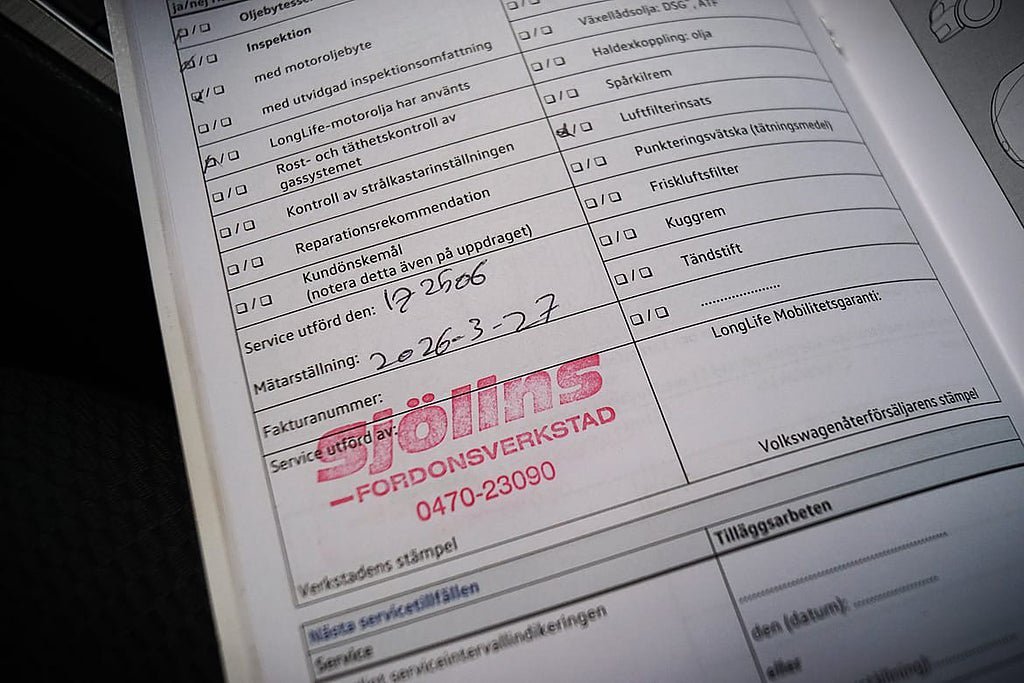 ja/nej
Oljebytesser
Inspektion
med motoroljebyte
med utvidgad inspektionsomfattning
LongLife-motorolja har använts
Rost- och täthetskontroll av
gassystemet
Kontroll av strålkastarinställningen
Reparationsrekommendation
Kundönskemål
(notera detta även på uppdraget)
Service utförd den: 172506
Mätarställning: 2026-3-27
Fakturanummer:
Service utförd av:
sjölins
FORDONSVERKSTAD
0470-23090
Verkstadens stämpel
Växellådsolja: DSG, ATF
Haldexkoppling: olja
Spårkilrem
Luftfilterinsats
Punkteringsvätska (tätningsmedel)
Friskluftsfilter
Kuggrem
Tändstift
LongLife Mobilitetsgaranti:
Volkswagenåterförsäljarens stämpel
Nästa servicetillfällen
Service
serviceintervallindikeringen
Tilläggsarbeten
den (datum):
eller